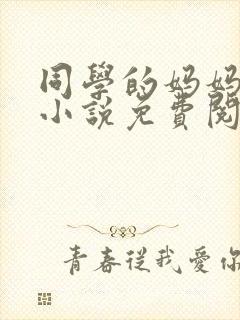 同學的妈妈
小说免費閱
青春從我愛你